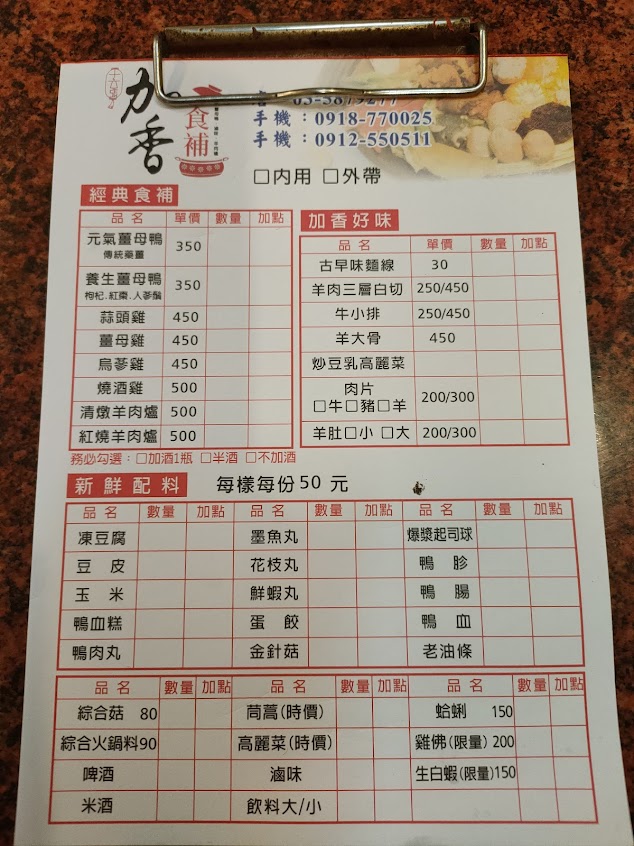 加香
食補
03-5879277
手機：0918-770025
手機：0912-550511
□內用 □外帶
經典食補
品名 單價 數量 加點
元氣薑母鴨 傳統藥薑 350
養生薑母鴨 枸杞.紅棗.人蔘鬚 350
蒜頭雞 450
薑母雞 450
烏蔘雞 450
燒酒雞 500
清燉羊肉爐 500
紅燒羊肉爐 500
務必勾選：□加酒1瓶 □半酒 □不加酒
加香好味
品名 單價 數量 加點
古早味麵線 30
羊肉三層白切 250/450
牛小排 250/450
羊大骨 450
炒豆乳高麗菜
肉片 □牛□豬□羊 200/300
羊肚□小 □大 200/300
新鮮配料 每樣每份50元
品名 數量 加點 品名 數量 加點 品名 數量 加點
凍豆腐 墨魚丸 爆漿起司球
豆皮 花枝丸 鴨胗
玉米 鮮蝦丸 鴨腸
鴨血糕 蛋餃 鴨血
鴨肉丸 金針菇 老油條
品名 數量 加點 品名 數量 加點 品名 數量 加點
綜合菇 80 茼蒿(時價) 蛤蜊 150
綜合火鍋料90 高麗菜(時價) 雞佛(限量) 200
啤酒 滷味 生白蝦(限量)150
米酒 飲料大/小